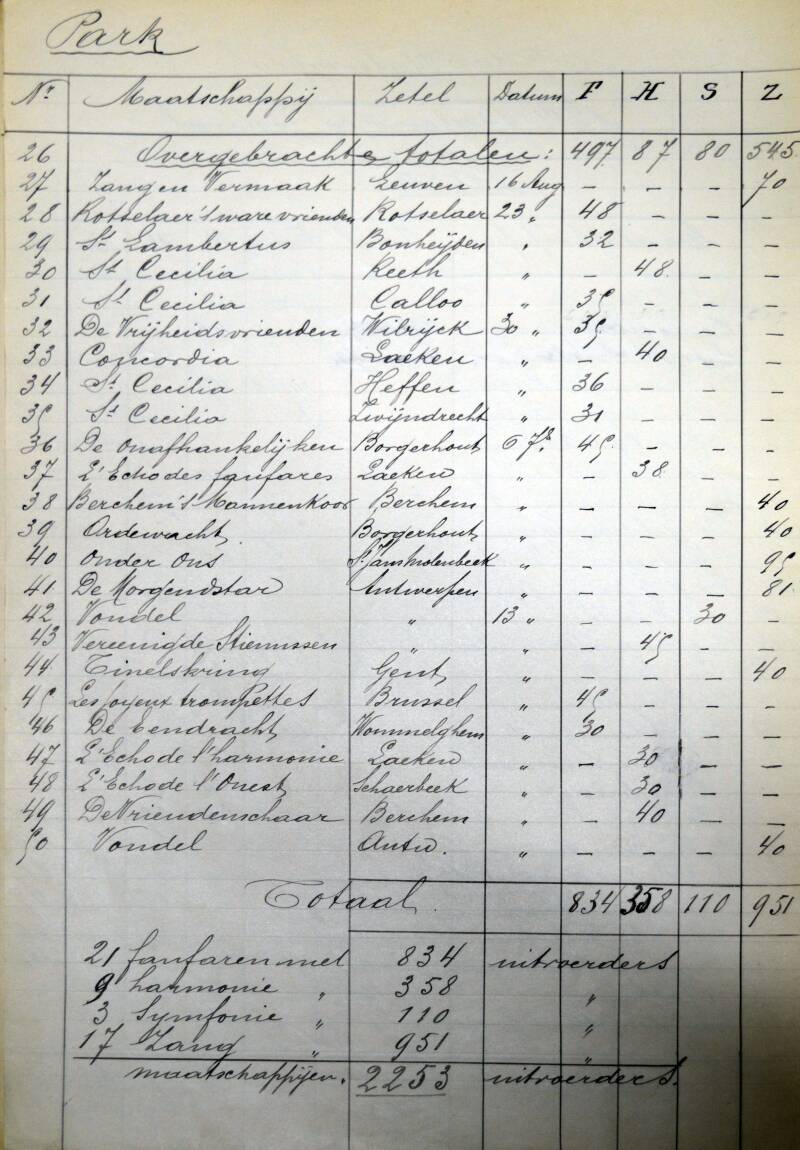 Park
Nr Maatschappij Zetel Datum F H S Z
26 Overgebrachte totalen: 497 87 80 545
27 Zang en Vermaak Leuven 16 Aug — — — 70
28 Rotselaer's ware vrienden Rotselaer 23 „ 48 — — —
29 St Lambertus Bonheijden „ 32 — — —
30 St Cecilia Reeth „ — 48 — —
31 St Cecilia Calloo „ 35 — — —
32 De Vrijheidsvrienden Wilrijck 30 „ 35 — — —
33 Concordia Laeken „ — 40 — —
34 St Cecilia Heffen „ 36 — — —
35 St Cecilia Zwijndrecht „ 31 — — —
36 De Onafhankelijken Borgerhout 6 7r. 45 — — —
37 L'Echo des fanfares Laeken „ — 38 — —
38 Berchem's Mannenkoor Berchem „ — — — 40
39 Ordewacht Borgerhout „ — — — 40
40 Onder Ons St Jansmolenbeek „ — — — 95
41 De Morgendstar Antwerpen „ — — — 81
42 Vondel „ 13 „ — — 30 —
43 Vereenigde Stiemissen „ „ — 45 — —
44 Tinelskring Gent „ — — — 40
45 Les joyeux trompettes Brussel „ 45 — — —
46 De Eendracht Wommelghem „ 30 — — —
47 L'Echo de l'harmonie Laeken „ — 30 — —
48 L'Echo de l'Ouest Schaerbeek „ — 30 — —
49 De Vriendenschaar Berchem „ — 40 — —
50 Vondel Antw. „ — — — 40
Totaal. 834 358 110 951
21 fanfaren met 834 uitvoerders
9 harmonie „ 358 „
3 Symfonie „ 110 „
17 Zang „ 951 „
maatschappijen. 2253 uitvoerders.